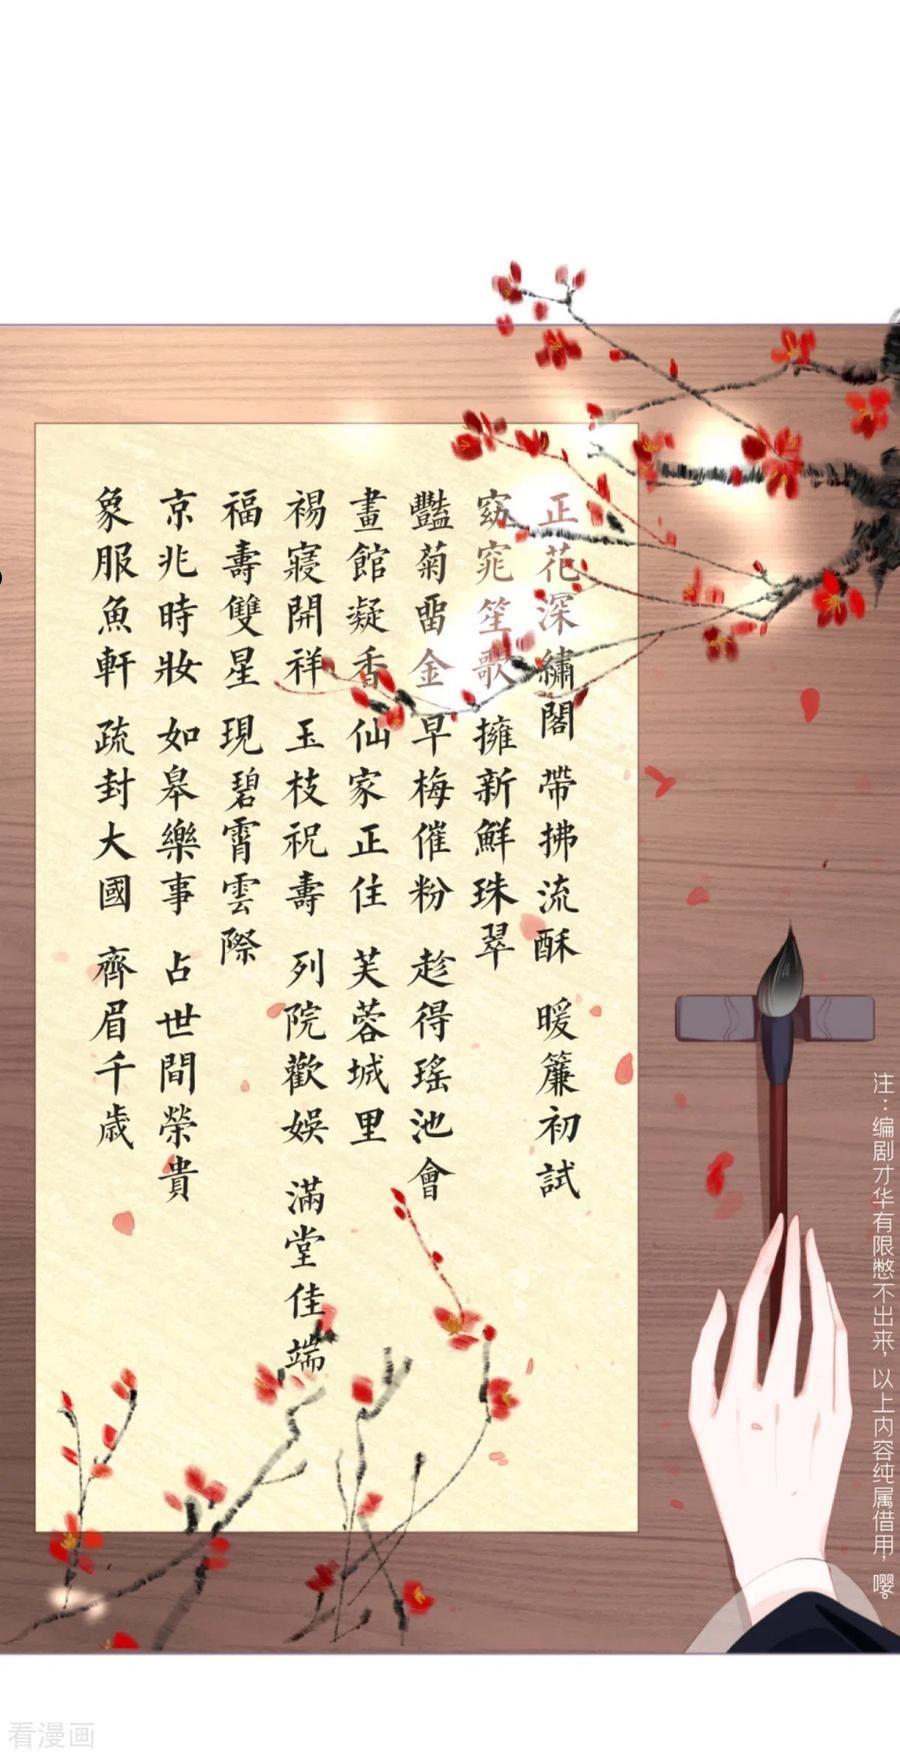 正花深繡閣 帶拂流酥 暖簾初試
窈窕笙歌 擁新鮮珠翠
豔菊畱金 早梅催粉 趁得瑤池會
畫館凝香 仙家正住 芙蓉城里
禓寢開祥 玉枝祝壽 列院歡娛 滿堂佳端
福壽雙星 現碧霄雲際
京兆時妝 如皋樂事 占世間榮貴
象服魚軒 疏封大國 齊眉千歳
注：编剧才华有限憋不出来，以上内容纯属借用，嘤。
看漫画